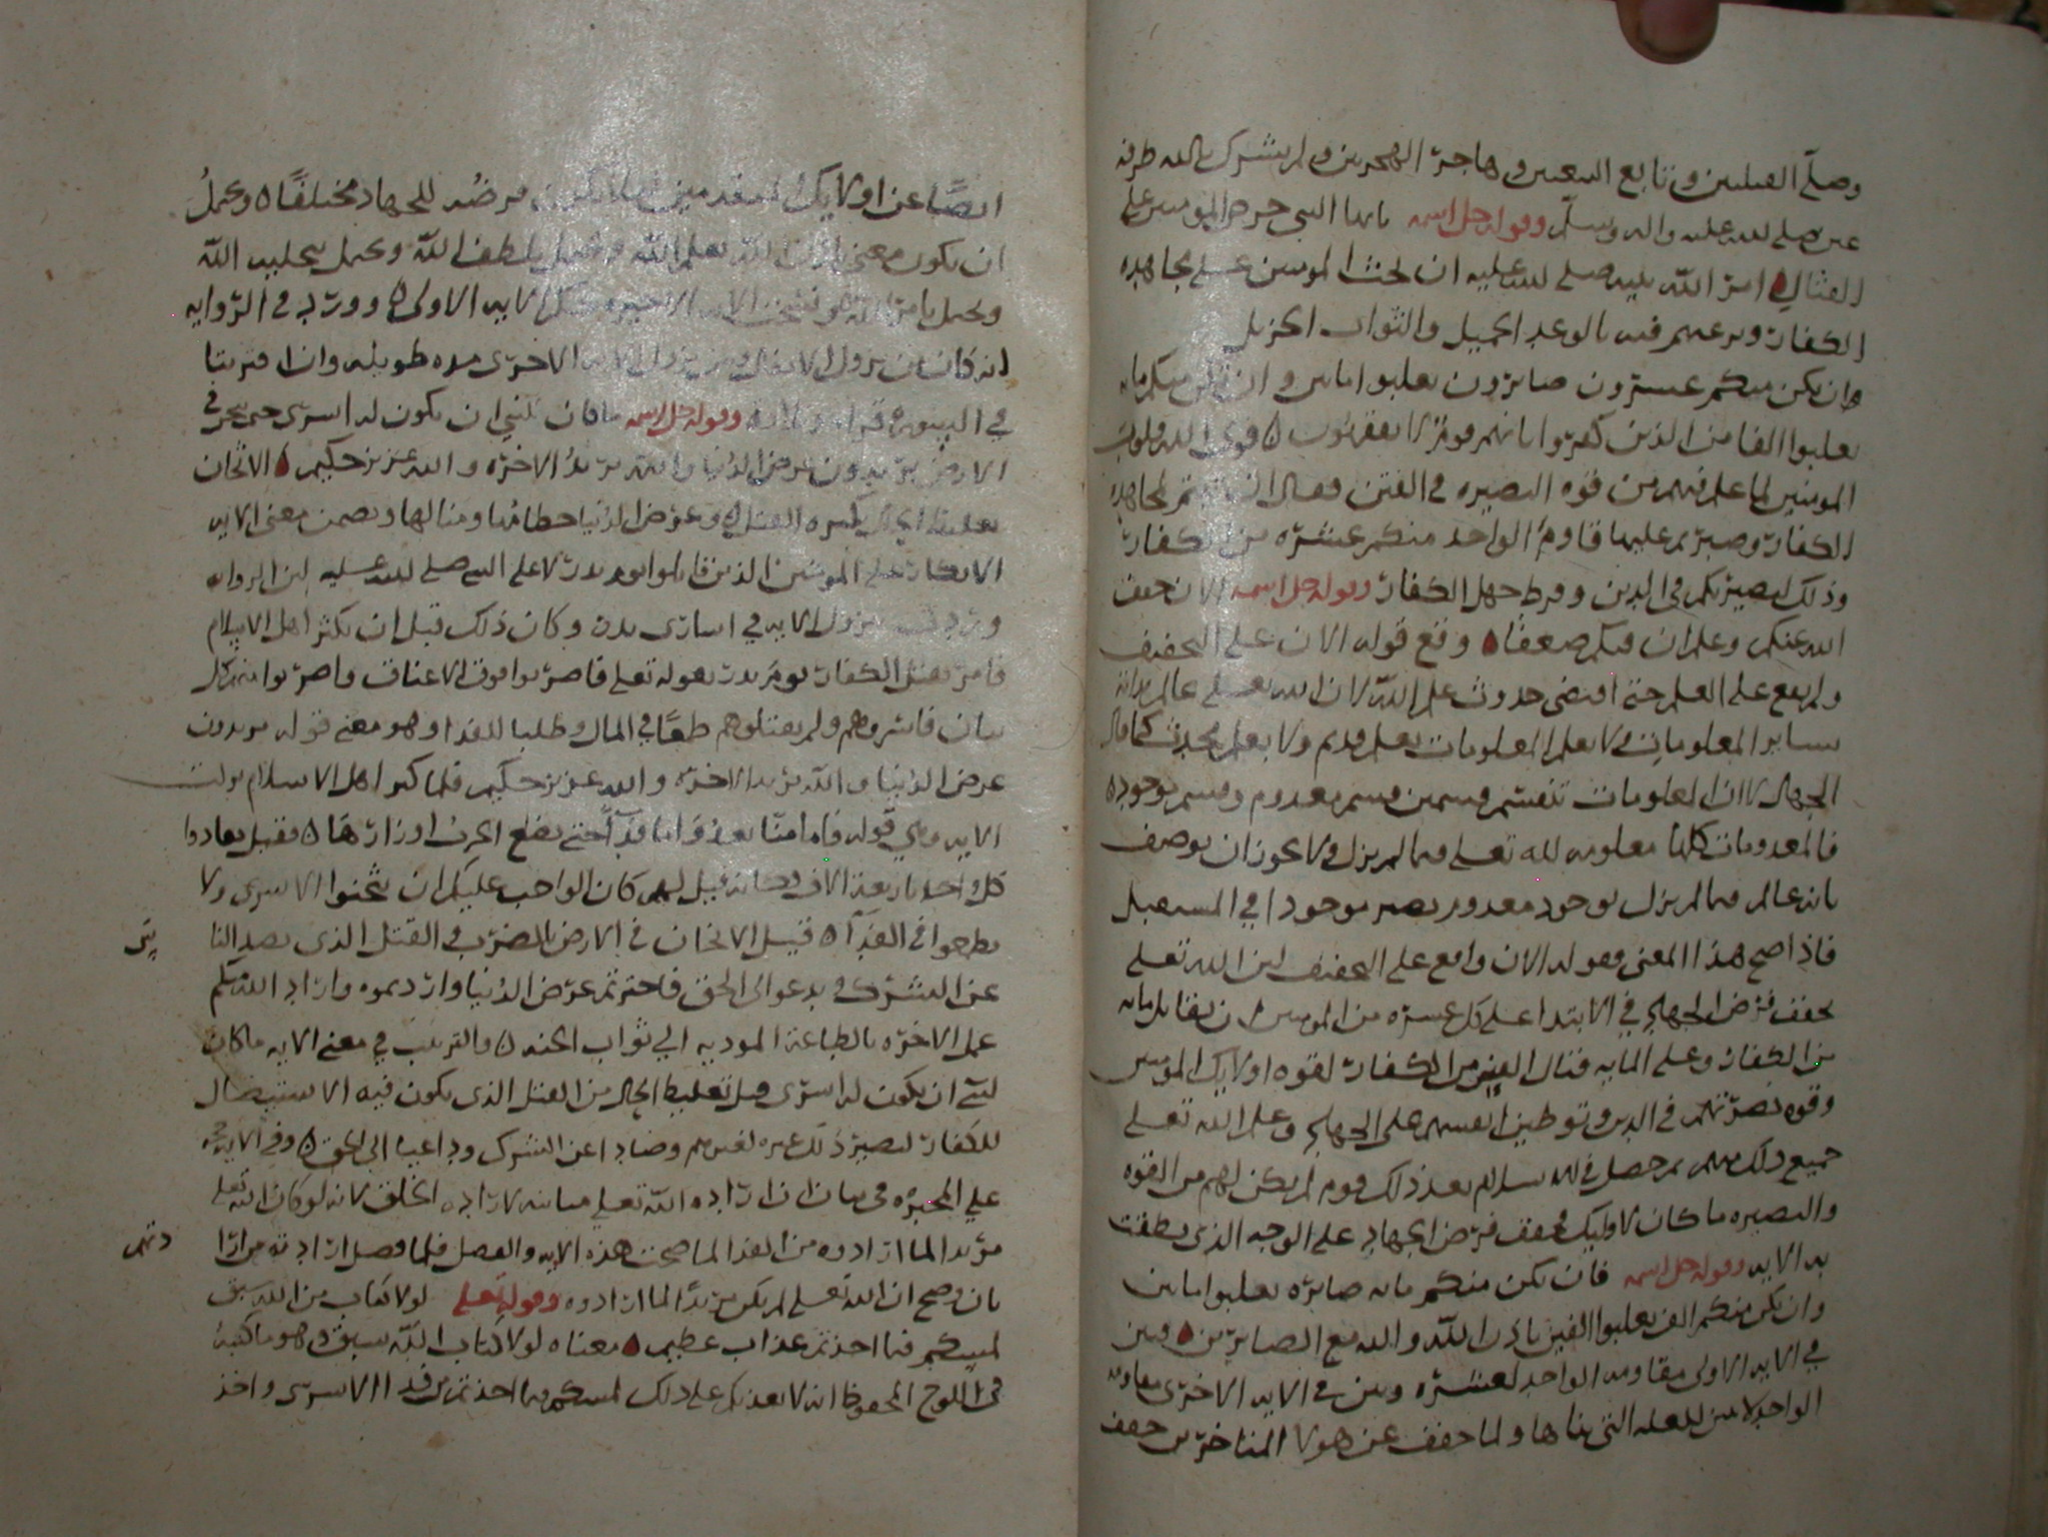 وصلى القبلتين وتابع البيعتين وهاجر الهجرتين ولم يشرك بالله طرفه
عين صلى الله عليه واله وسلم وقوله جل اسمه يايها النبي حرض المومنين على
القتال امر الله نبيه صلى الله عليه ان يحث المومنين على مجاهده
الكفار ويرغبهم فيه بالوعد الجميل والثواب الجزيل
وان يكن منكم عشرون صابرون يغلبوا مايتين وان تكن منكم مايه
يغلبوا الفا من الذين كفروا بانهم قوم لا يفقهون ٥ قوى الله قلوب
المومنين لما علم فيهم من قوه البصيره في الفتن فقال ان لمجاهده
الكفار وصبرتم عليها قاوم الواحد منكم عشره من الكفار
وذلك لبصيرتكم في الدين وفرط جهل الكفار وقوله جل اسمه الان خفف
الله عنكم وعلم ان فيكم ضعفا ٥ وقع قوله الان على التخفيف
ولم يقع على العلم حتى اقتضى حدوث علم الله لان الله تعلى عالم بذاته
بساير المعلومات ولا يعلم المعلومات بعلم قديم ولا بعلم محدث كما قال
الجهال لان المعلومات تنقسم قسمين قسم معدوم وقسم موجود ٥
فالمعدومات كلها معلومه لله تعلى فيما لم يزل ولا يجوز ان يوصف
بانه عالم فيما لم يزل بوجود معدوم يصير موجودا في المستقبل
فاذا صح هذا المعنى فقوله الان واقع على التخفيف لان الله تعلى
خفف فرض الجهاد في الابتدا على كل عشره من المومنين ان يقاتل مايه
من الكفار وعلى المايه قتال الف من الكفار لقوه اولايك المومنين
وقوه بصرتهم في الدين وتوطين انفسهم على الجهاد وعلم الله تعلى
جميع ذلك منهم ثم حصل في الاسلام بعد ذلك قوم لم يكن لهم من القوه
والبصيره ما كان لاوليك فخفف فرض الجهاد على الوجه الذي نطقت
به الايه وقوله جل اسمه فان يكن منكم مايه صابره يغلبوا مايتين
وان يكن منكم الف يغلبوا الفين باذن الله والله مع الصابرين ٥ وبين
في الايه الاولى مقاومه الواحد لعشره وبين في الايه الاخرى مقاومه
الواحد لاثنين للعله التي بينها ولما خفف عن هولا المتاخرين خفف
ايضا عن اولايك المتقدمين ليلا يكون فرضه للجهاد مختلفا ٥ ويحتمل
ان يكون معنى باذن الله بعلم الله ويحتمل بلطف الله ويحتمل بتخليه الله
ويحتمل بامر الله ونسخت الايه الاخيره حكم الايه الاولى ٥ وورد في الروايه
انه كان بين نزول الاولى وبين نزول الايه الاخرى مده طويله وان اقترنتا
في السوره قراه وتلاوه وقوله جل اسمه ما كان لنبي ان يكون له اسرى حتى يثخن في
الارض يريدون عرض الدنيا والله يريد الاخره والله عزيز حكيم ٥ الاثخان
تغليظ الحال بكثره القتل وعرض الدنيا حطامها ومنالها وتضمن معنى الايه
الانكار على المومنين الذين قاتلوا يوم بدر لا على النبي صلى الله عليه لان الروايه
وردت بنزول الايه في اسارى بدر وكان ذلك قبل ان يكثر اهل الاسلام
فامر بقتل الكفار يوم بدر بقوله تعلى فاضربوا فوق الاعناق واضربوا منهم كل
بنان فاسروهم ولم يقتلوهم طمعا في المال وطلبا للفدا وهو معنى قوله تريدون
عرض الدنيا والله يريد الاخره والله عزيز حكيم فلما كثر اهل الاسلام نزلت
الايه وهي قوله فاما منا بعد واما فدا حتى تضع الحرب اوزارها ٥ فقيل تفادوا
كل واحد باربعه الاف وكانه قيل لهم كان الواجب عليكم ان تثخنوا الاسرى ولا
تطمعوا في الفدا ٥ قيل الاثخان في الارض الضرب في القتل الذي يصد النا
عن الشرك ويدعو الى الحق فاخترتم عرض الدنيا واردتموه واراد الله منكم
عمل الاخره بالطاعه الموديه الى ثواب الجنه ٥ والترتيب في معنى الايه ما كان
لنبي ان يكون له اسرى قبل تغليظ الحال من القتل الذي يكون فيه الاستيصال
للكفار ليصير ذلك عبره لغيرهم وصادا عن الشرك وداعيا الى الحق ٥ وفي الايه حجه
على المجبره في بيان ان اراده الله تعلى مباينه لاراده الخلق لانه لو كان الله تعلى
مريدا لما ارادوه من الفدا لما صحت هذه الايه والفصل فلما فصل ارادته من ارا
بان وصح ان الله تعلى لم يكن مريدا لما ارادوه وقوله تعلى لولا كتاب من الله سبق
لمسكم فيما اخذتم عذاب عظيم ٥ معناه لولا كتاب الله سبق وهو ما كتبه
في اللوح المحفوظ انه لا يعذبكم على ذلك لمسكم فيما اخذتم من فدا الاسرى واخذ
دتهم